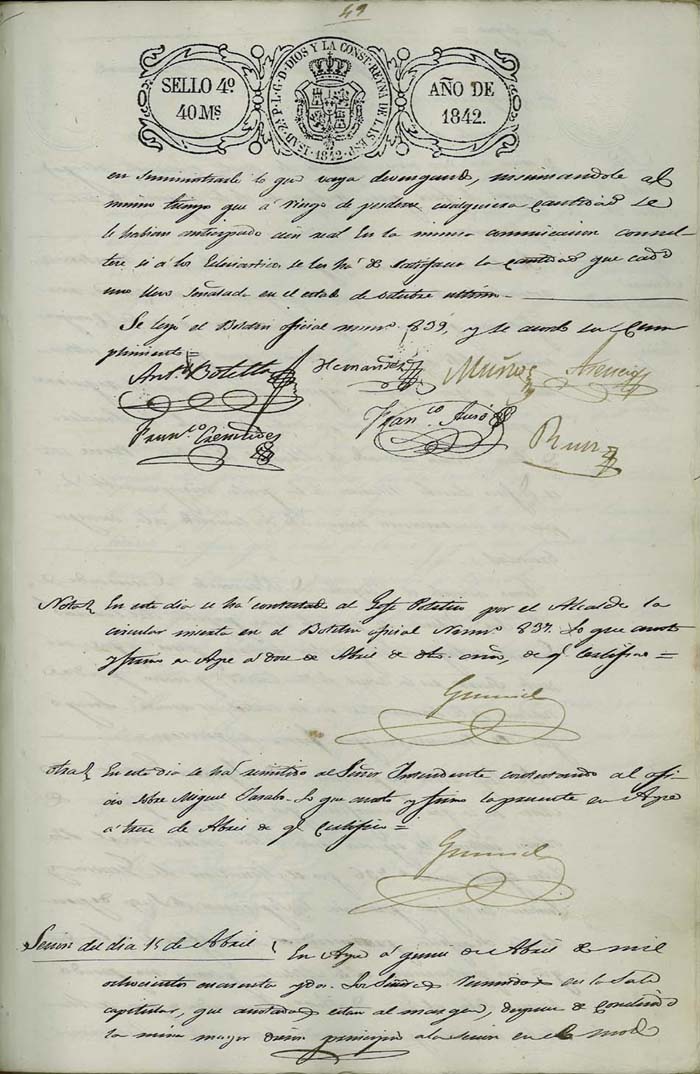 49
SELLO 4º
40 Ms
ISAB. 2ª P. L. G. D. DIOS Y LA CONST. REYNA DE LAS ESP. 1842
AÑO DE
1842.
en suministrarle lo que vaya devengando, al
mismo tiempo que á riesgo de perderse cualquiera cantidad se
le habian anticipado un real En la misma comunicacion
si á los se les há de satisfacer la cantidad que cada
uno tiene señalada en el de octubre ultimo.
Se leyó el Boletin oficial num.º 839, y se acordó su Cum
plimiento =
Ant.º Botella
Hernandez
Muñoz
Asencio
Fran.co
Fran.co
Ruiz
Nota En este dia se há contestado al Gefe Politico por el Alcalde la
circular inserta en el Boletin oficial Num.º 837. Lo que anoto
y firmo en Aspe á doce de Abril de dho. año, de q.e Certifico =
otra En este dia se há remitido al Señor Intendente contestando al ofi
cio sobre Miguel Lo que anoto y firmo la presente en Aspe
á trece de Abril de q.e Certifico =
Sesion del dia 15 de Abril En Aspe á quince de Abril de mil
ochocientos cuarenta y dos. Los Señores reunidos en la Sala
capitular, que anotados estan al margen, despues de concluida
la misa mayor dieron principio a la sesion en el modo